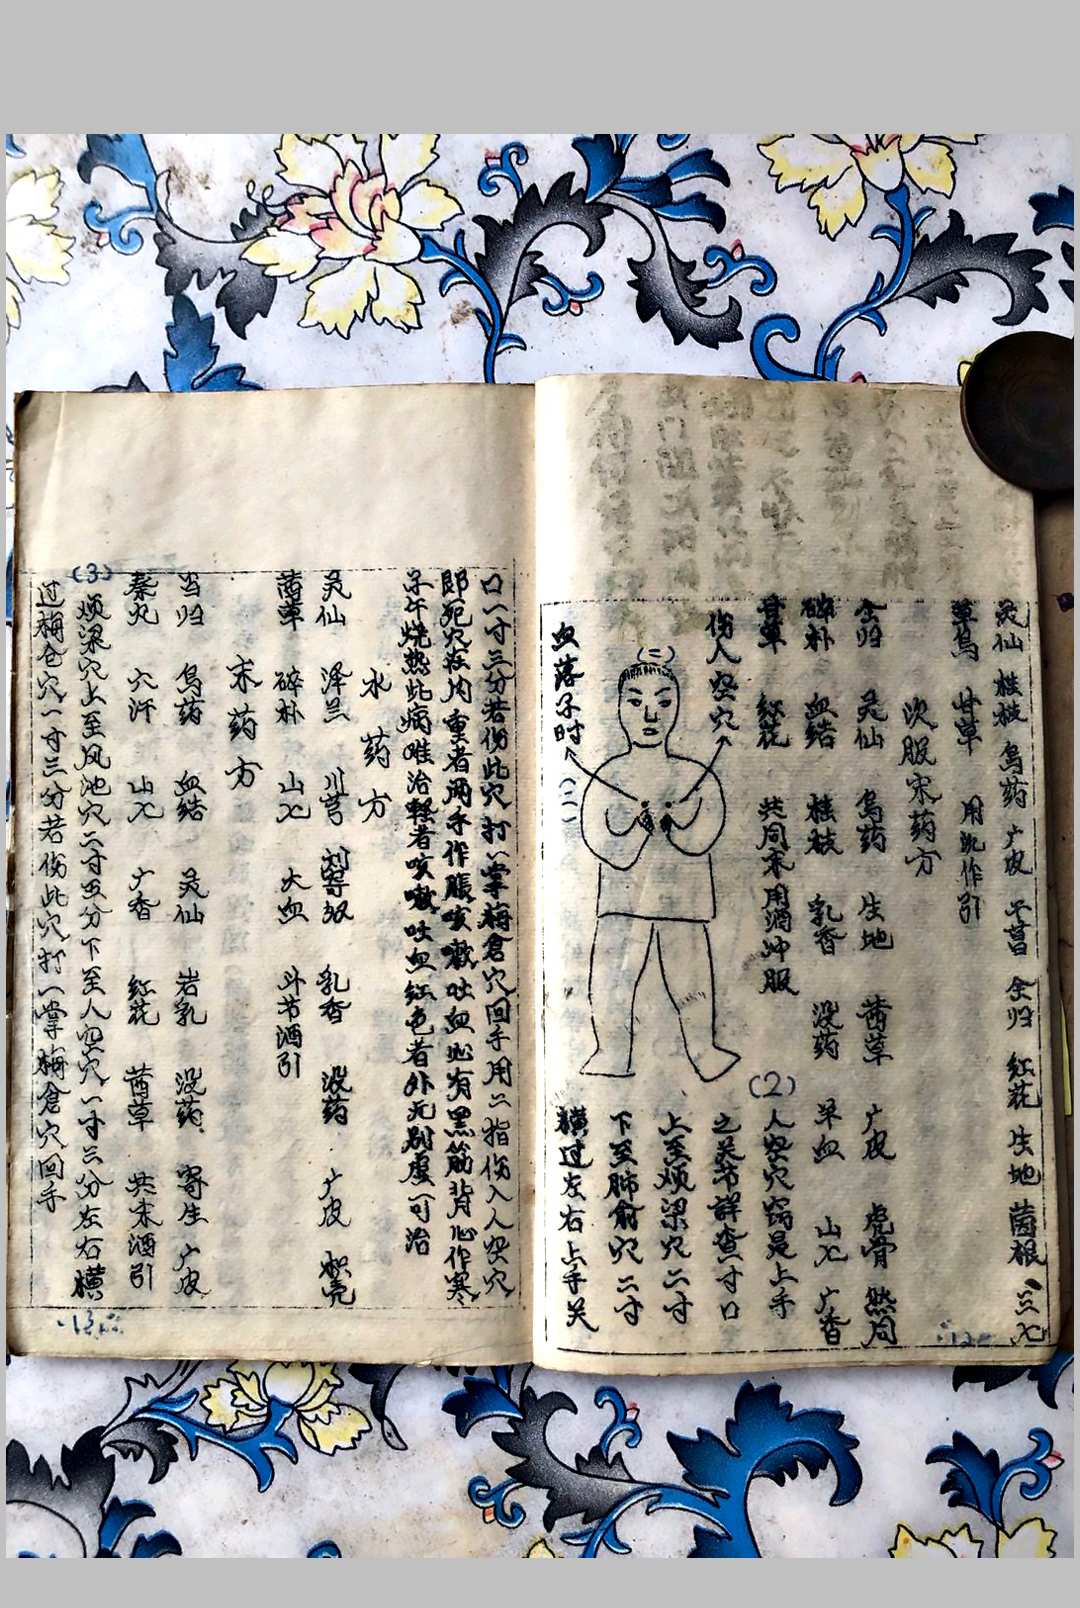 灵仙 桂枝 乌药 广皮 全归 红花 生地 茜根 三七
草乌 甘草 用洗作引
次服末药方
全归 灵仙 乌药 生地 茜草 广皮 虎骨 然同
碎补 血结 桂枝 乳香 没药 早血 山七 广香
甘草 红花 共同末用酒冲服
伤人空穴
(二)
血落子时
(二)
(2)
人空穴窍是上手
之关节詳查寸口
上至烦梁穴二寸
下至肺俞穴二寸
横过左右上手关
12
口一寸三分若伤此穴打一掌梅倉穴回手用二指伤入人空穴
即死穴在内重者两手作脹咳嗽吐血必有黑筋背心作寒
子午烧热此病难治轻者咳嗽吐血红色者外无别虞可治
水药方
灵仙 泽兰 川芎 寄奴 乳香 没药 广皮 枳壳
茜草 碎补 山七 大血 斗节酒引
末药方
当归 乌药 血结 灵仙 岩乳 没药 寄生 广皮
秦艽 六汗 山七 广香 红花 茜草 共末酒引
(3)
烦梁穴上至风池穴二寸五分下至人空穴一寸三分左右横
过梅仓穴一寸三分若伤此穴打一掌梅倉穴回手
13